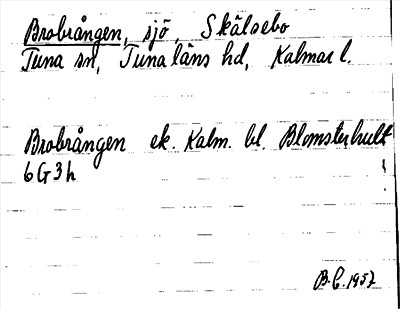 Brobrången, sjö, Skälsebo
Tuna sn, Tuna läns hd, Kalmar l.
Brobrången ek. Kalm. bl. Blomsterhult
6G3h
B.C. 1957